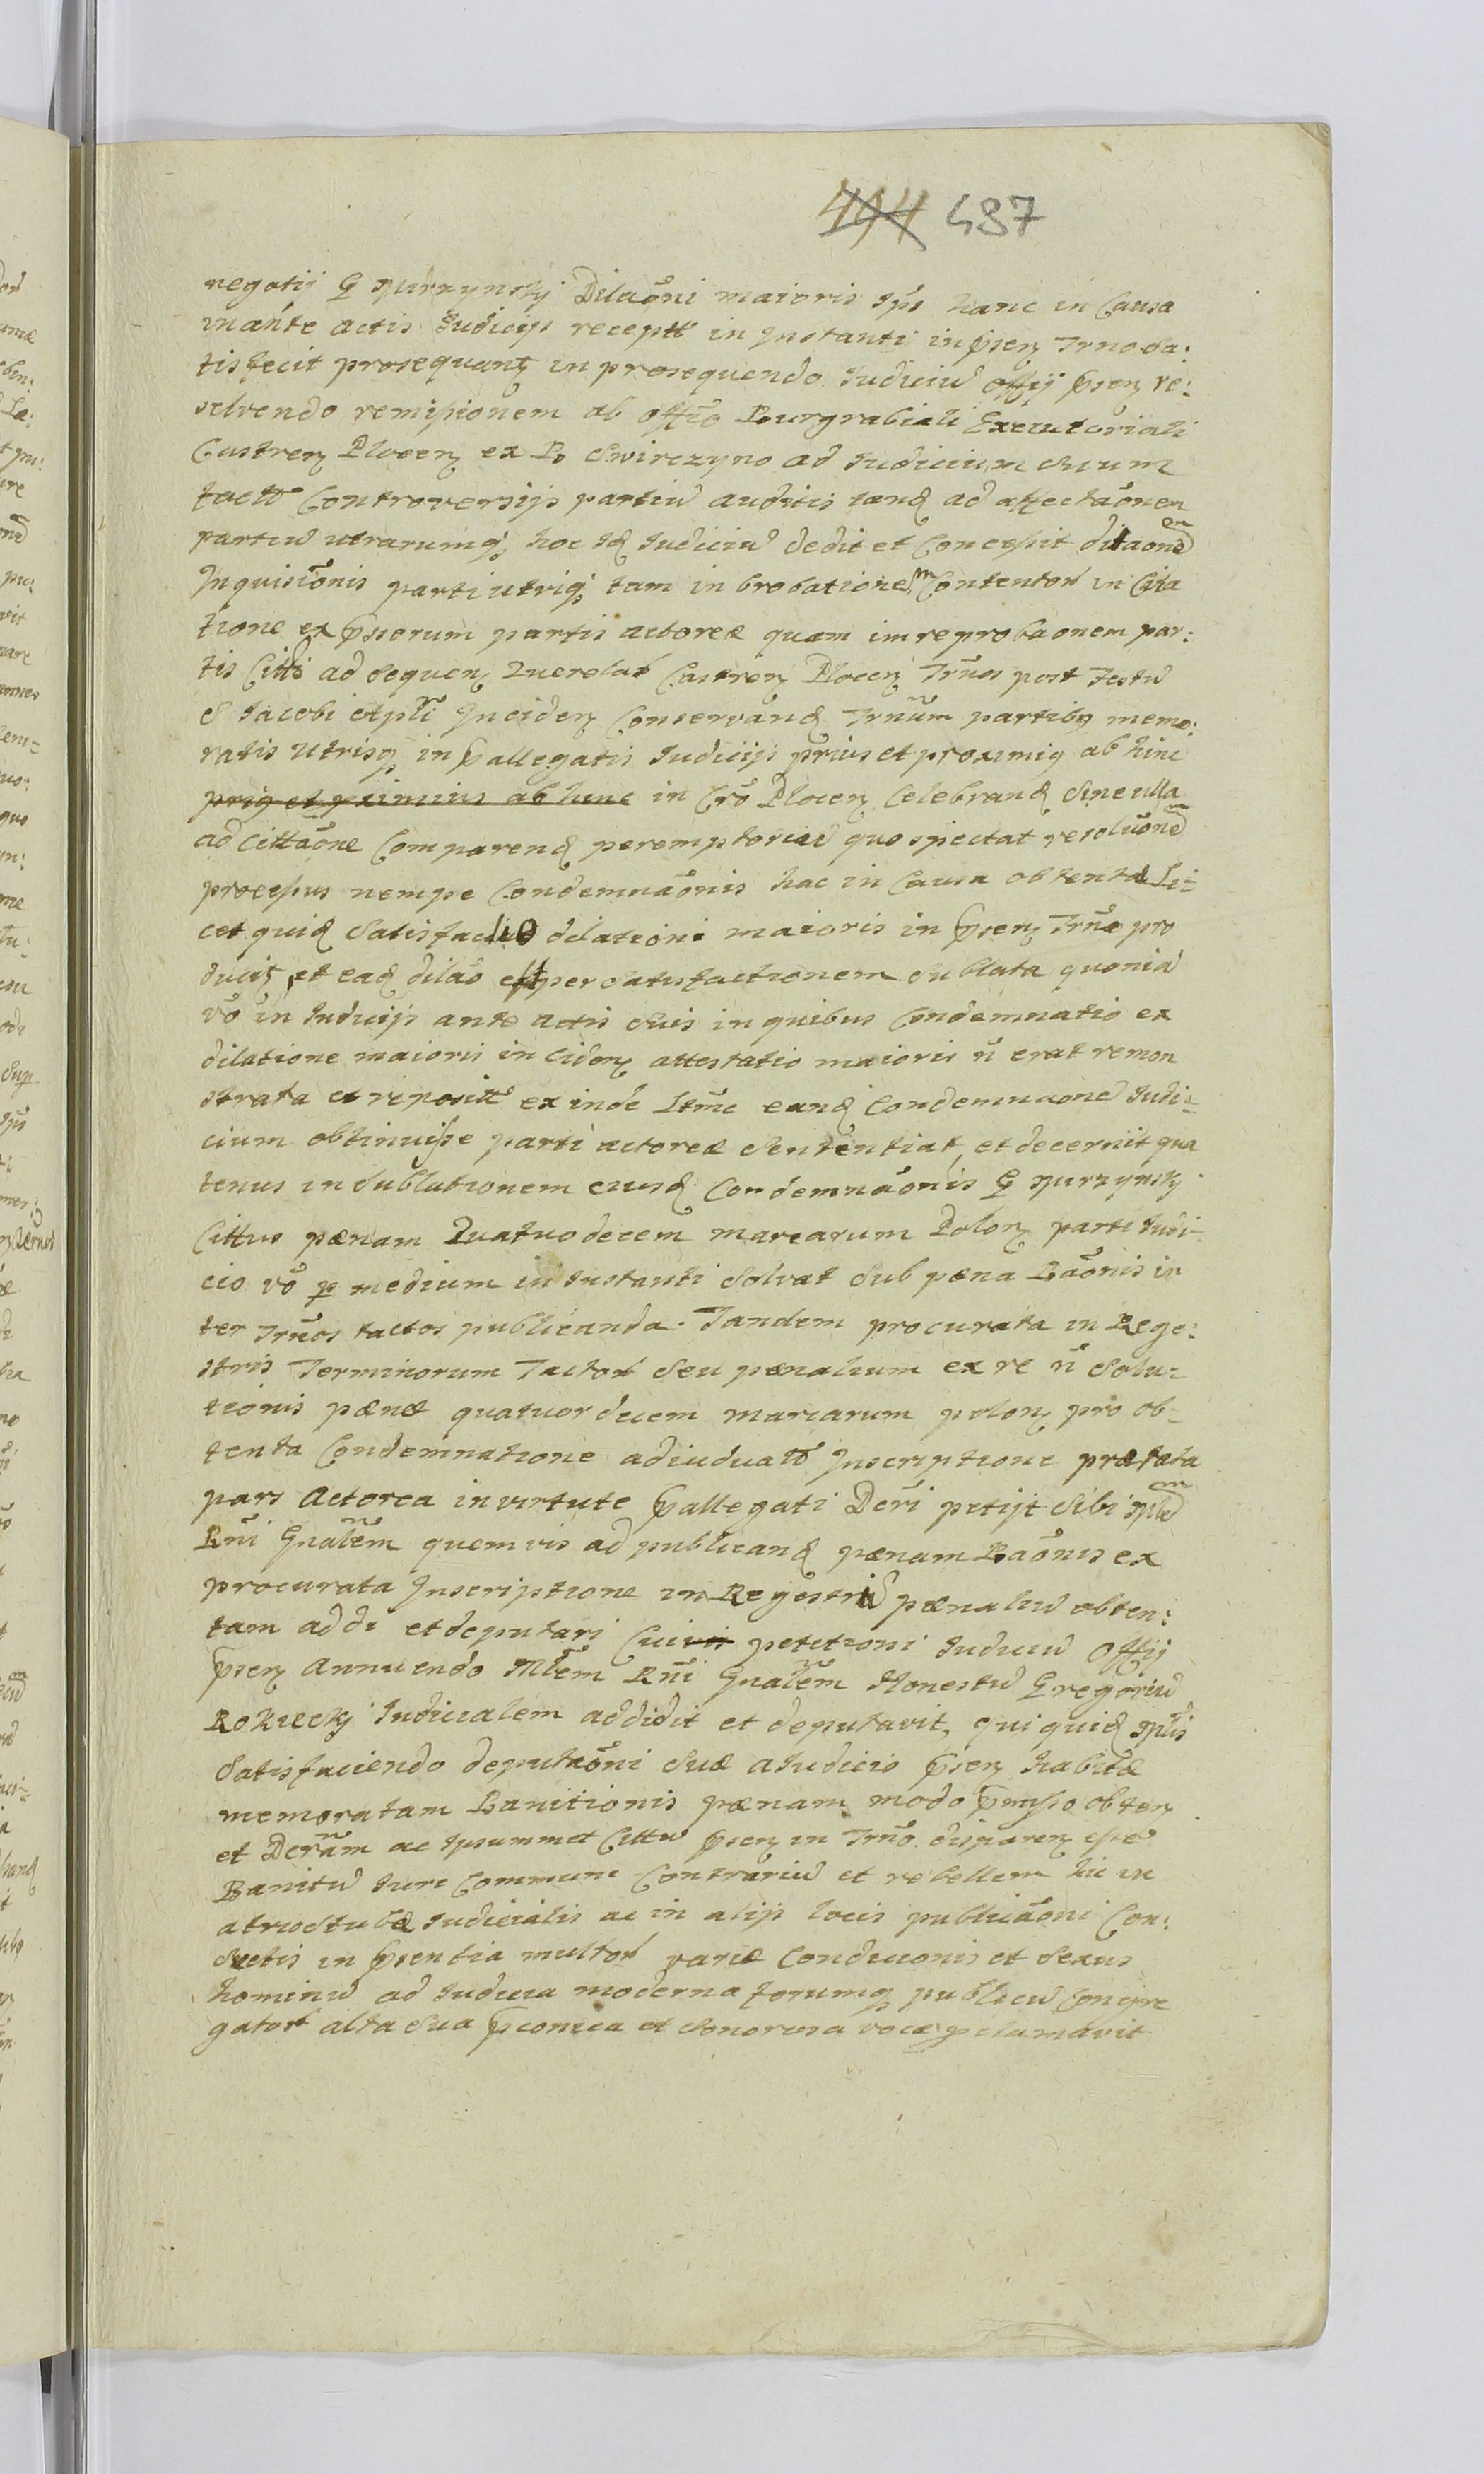 444 487
negotij G Murzynskj Dilaõni maioris Ips hanc in Causa
in ante actis Judicijs receptæ in Instanti in pñsen Trno sa:
tisfecit prosequen in prosequendo Judiciũ Offij pñsen re:
solvendo remissionem ab Offio Burgrabiali Executoriali
Castren Plocen ex B Swirczyno ad Judicium suum
factæ Controversijs partiũ auditis tandẽ ad affectaõnem
partiũ utrarumq hoc idẽ Judiciũ dedit et Concessit dilaonẽ
Inquisiõnis parti utriq tam in brobationem Contentor in Cita
tione expssorum partis actoreæ quam im reprobaonem par:
tis Cittæ ad sequen Querelar Castren Plocen Trños post Festũ
S Jacobi Apli Inciden Conservanđ Trnum partibus memo:
ratis utrisq in pallegatis Judicijs prius et proximiq ab hinc
priq et priximius ab hinc in Crõ Plocen Celebranđ Sine ulla
ad cittaõne Comparenđ peremptoriũ quo spectat resoluõnẽ
processus nempe Condemnaõnis hac in Causa obtentæ Li=
cet quiđ Satisfactio dilationi maioris in pñsen Trño pro
ducit et eađ dilaõ est per satisfactionem sublata quoniã
võ in Judicijs ante actis suis in quibus Condemnatio ex
dilatione maioris inciden attestatio maioris ñ erat remon
strata et repositæ exinde ltme eanđ Condemnaonẽ Judi=
cium obtinuisse parti actoreæ Sententiat, et decernit qua
tenus in sublationem eiusđ Condemnaõnis G Murzynskj
Cittus pænam Quatuodecem marcarum Polon parti Judi=
cio võ p medium in Instanti solvat sub pæna Baõnis in
ter Trños tactos publicanda. Tandem procurata in Rege:
stris Terminorum Tactor seu pænalium ex re ñ solu=
tionis pænæ quatuordecem marcarum polon pro ob=
tenta Condemnatione adiudicatæ Inscriptione præfata
pars Actorea in virtute pallegati Decri petijt sibi Mlẽ
Rñi Gñalem quemvis ad publicanđ pænam Baõnis ex
procurata Inscriptione in Regestris pænaliũ obten:
tam addi et deputari Cui petetioni Judiciũ Offij
pñsen Annuendo Mlem Rñi Gñalem Honestũ Gregoriũ
Rokieckj Judicialem addidit et deputavit, qui quiđ Mlis
Satisfaciendo deputaõni suæ a Judicio pñsen habitæ
memoratam Banitionis pænam modo pmisso obten
et Decram ac Ipsummet Cittũ pñsen in Trño disparen esse
Banitũ Jure Communi Contrariũ et rebellem hic in
atrio stubæ Judicialis ac in alijs locis publicaõni Con:
suetis in pñsentia multor variæ Condicionis et sexus
hominũ ad Judicia moderna forumq publicũ Congre
gator alta sua pconica et Sonorosa voce pclamavit